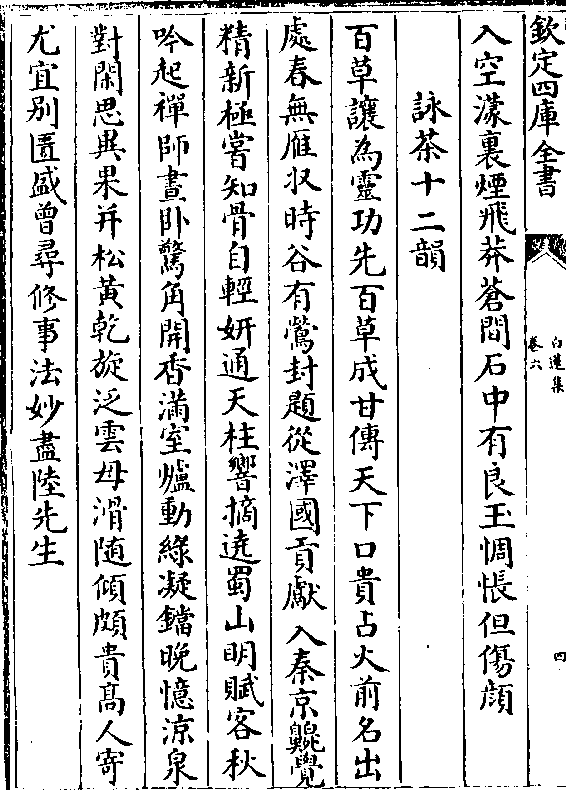 欽定四庫全書
白蓮集
卷六
四
入空濛裏煙飛莽蒼間石中有良玉惆悵但傷顔
詠茶十二韻
百草讓為靈功先百草成甘傳天下口貴占火前名出
處春無雁収時谷有鶯封題從澤國貢獻入秦京齅覺
精新極嘗知骨自輕妍通天柱響摘遶蜀山明賦客秋
吟起禪師晝卧驚角開香滿室爐動緑凝鐺晚憶涼泉
對閑思異果平松黄乾旋泛雲母滑随傾頗貴髙人寄
尤宜别匱盛曾尋修事法妙盡陸先生